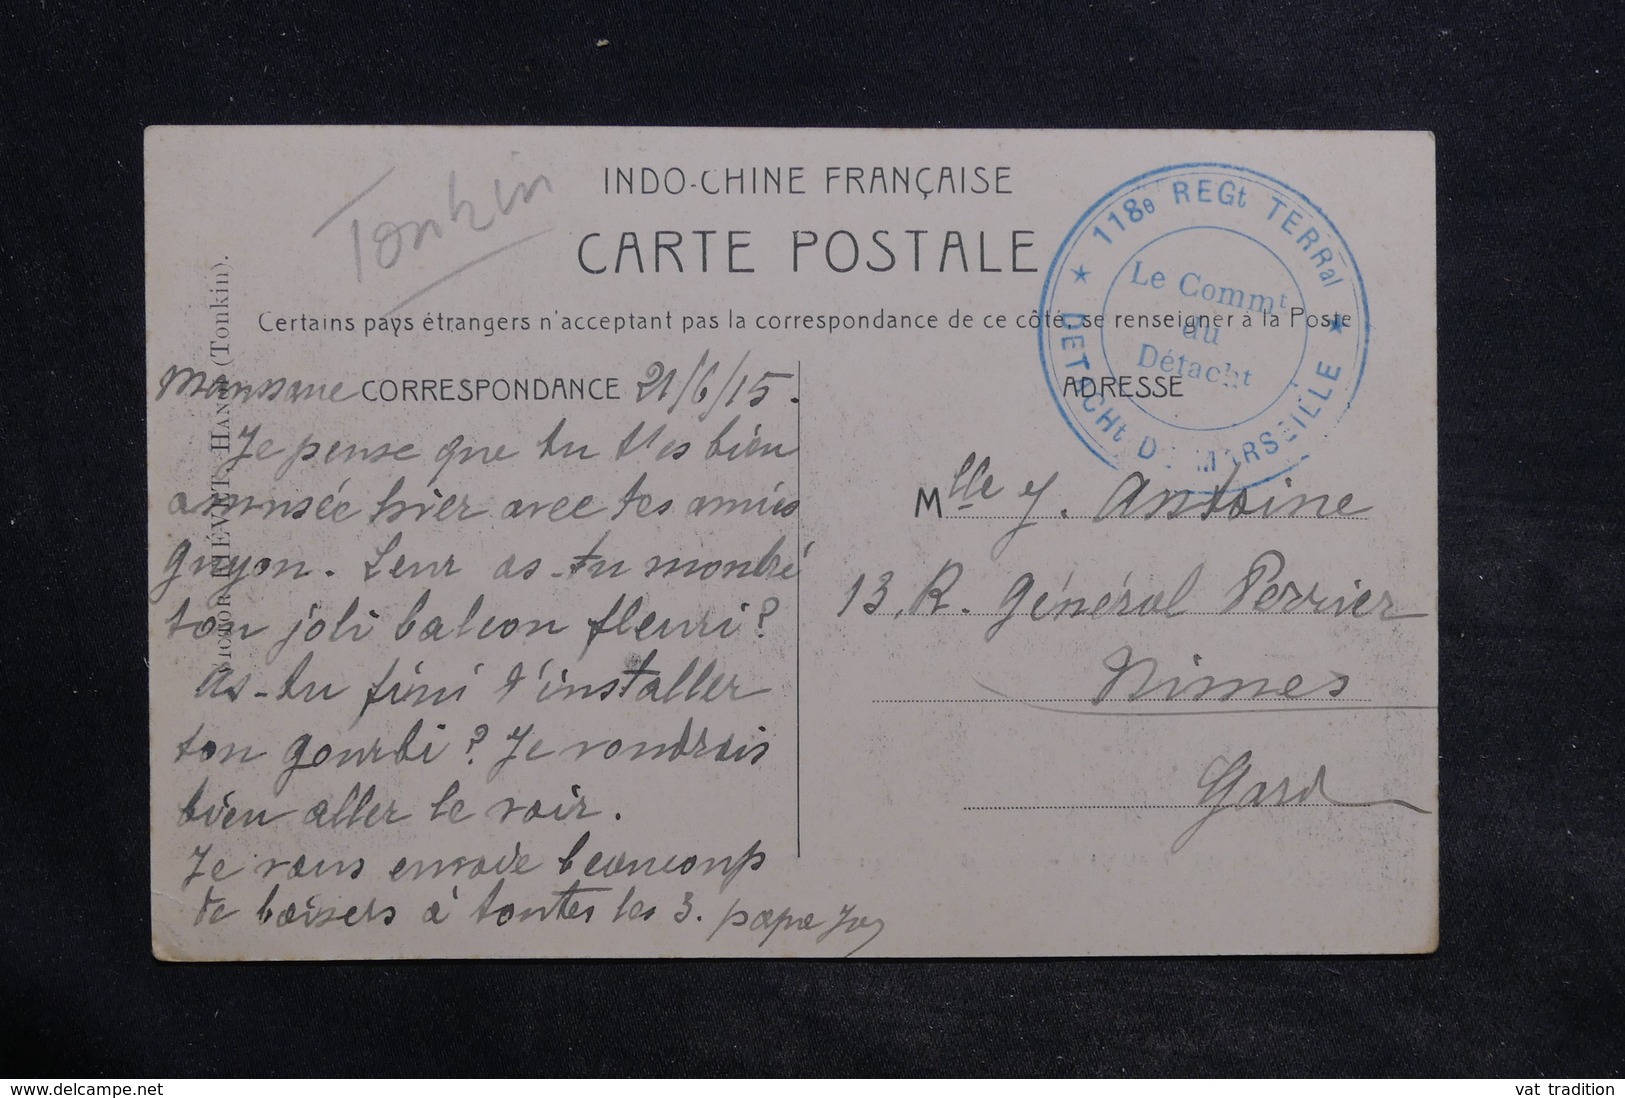 Tonkin
INDO-CHINE FRANÇAISE
CARTE POSTALE
Certains pays étrangers n'acceptant pas la correspondance de ce côté, se renseigner à la Poste
118e REGt TERRal
DETACHt DE MARSEILLE
Le Commt
du
Détacht
CORRESPONDANCE 21/6/15.
Je pense que tu t'es bien
amusée hier avec tes amies
Guyon. Leur as-tu montré
ton joli balcon fleuri?
As-tu fini d'installer
ton gourbi? Je voudrais
bien aller le voir.
Je vous envoie beaucoup
de baisers à toutes les 3. papa
ADRESSE
Mlle Y. Antoine
13, R. Général Perrier
Nimes
Gard
VICTOR FIÉVET, HANOI (Tonkin).
delcampe.net
vat tradition